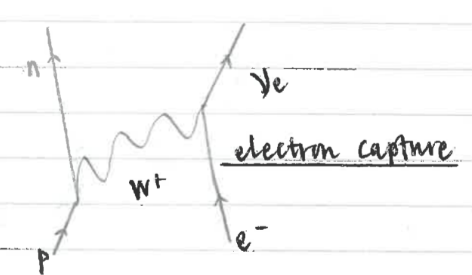 n
νe
electron capture
W+
p
e-